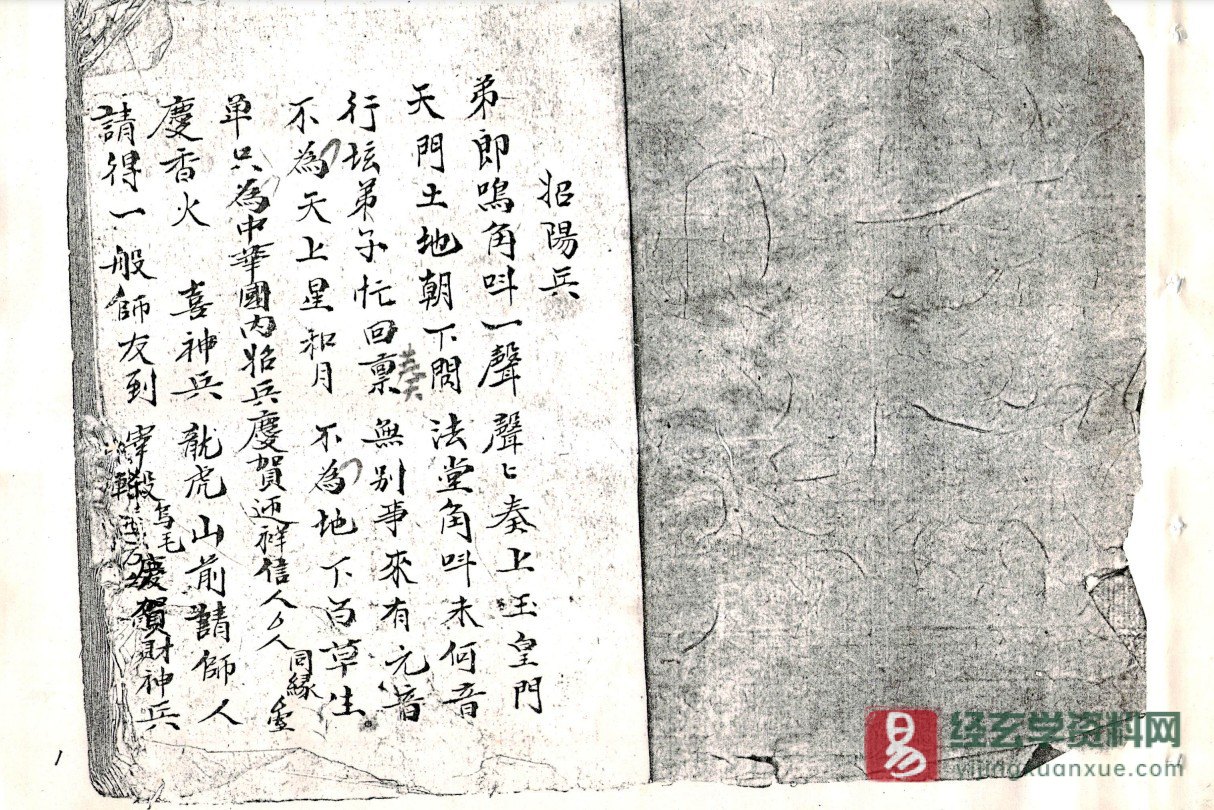 招陽兵
弟郎鳴角叫一聲 聲〻奏上玉皇門
天門土地朝下問 法堂角叫未何音
行坛弟子忙回禀奏 無别事來有元音
不為天上星和月 不為地下百草生
单只為中華國内招兵慶賀迎祥信人 人同縁
慶香火 喜神兵 龍虎山前請師人
請得一般師友到 宰殺烏毛慶賀財神兵
1
易
经玄学资料网
yijingxuanxue.com